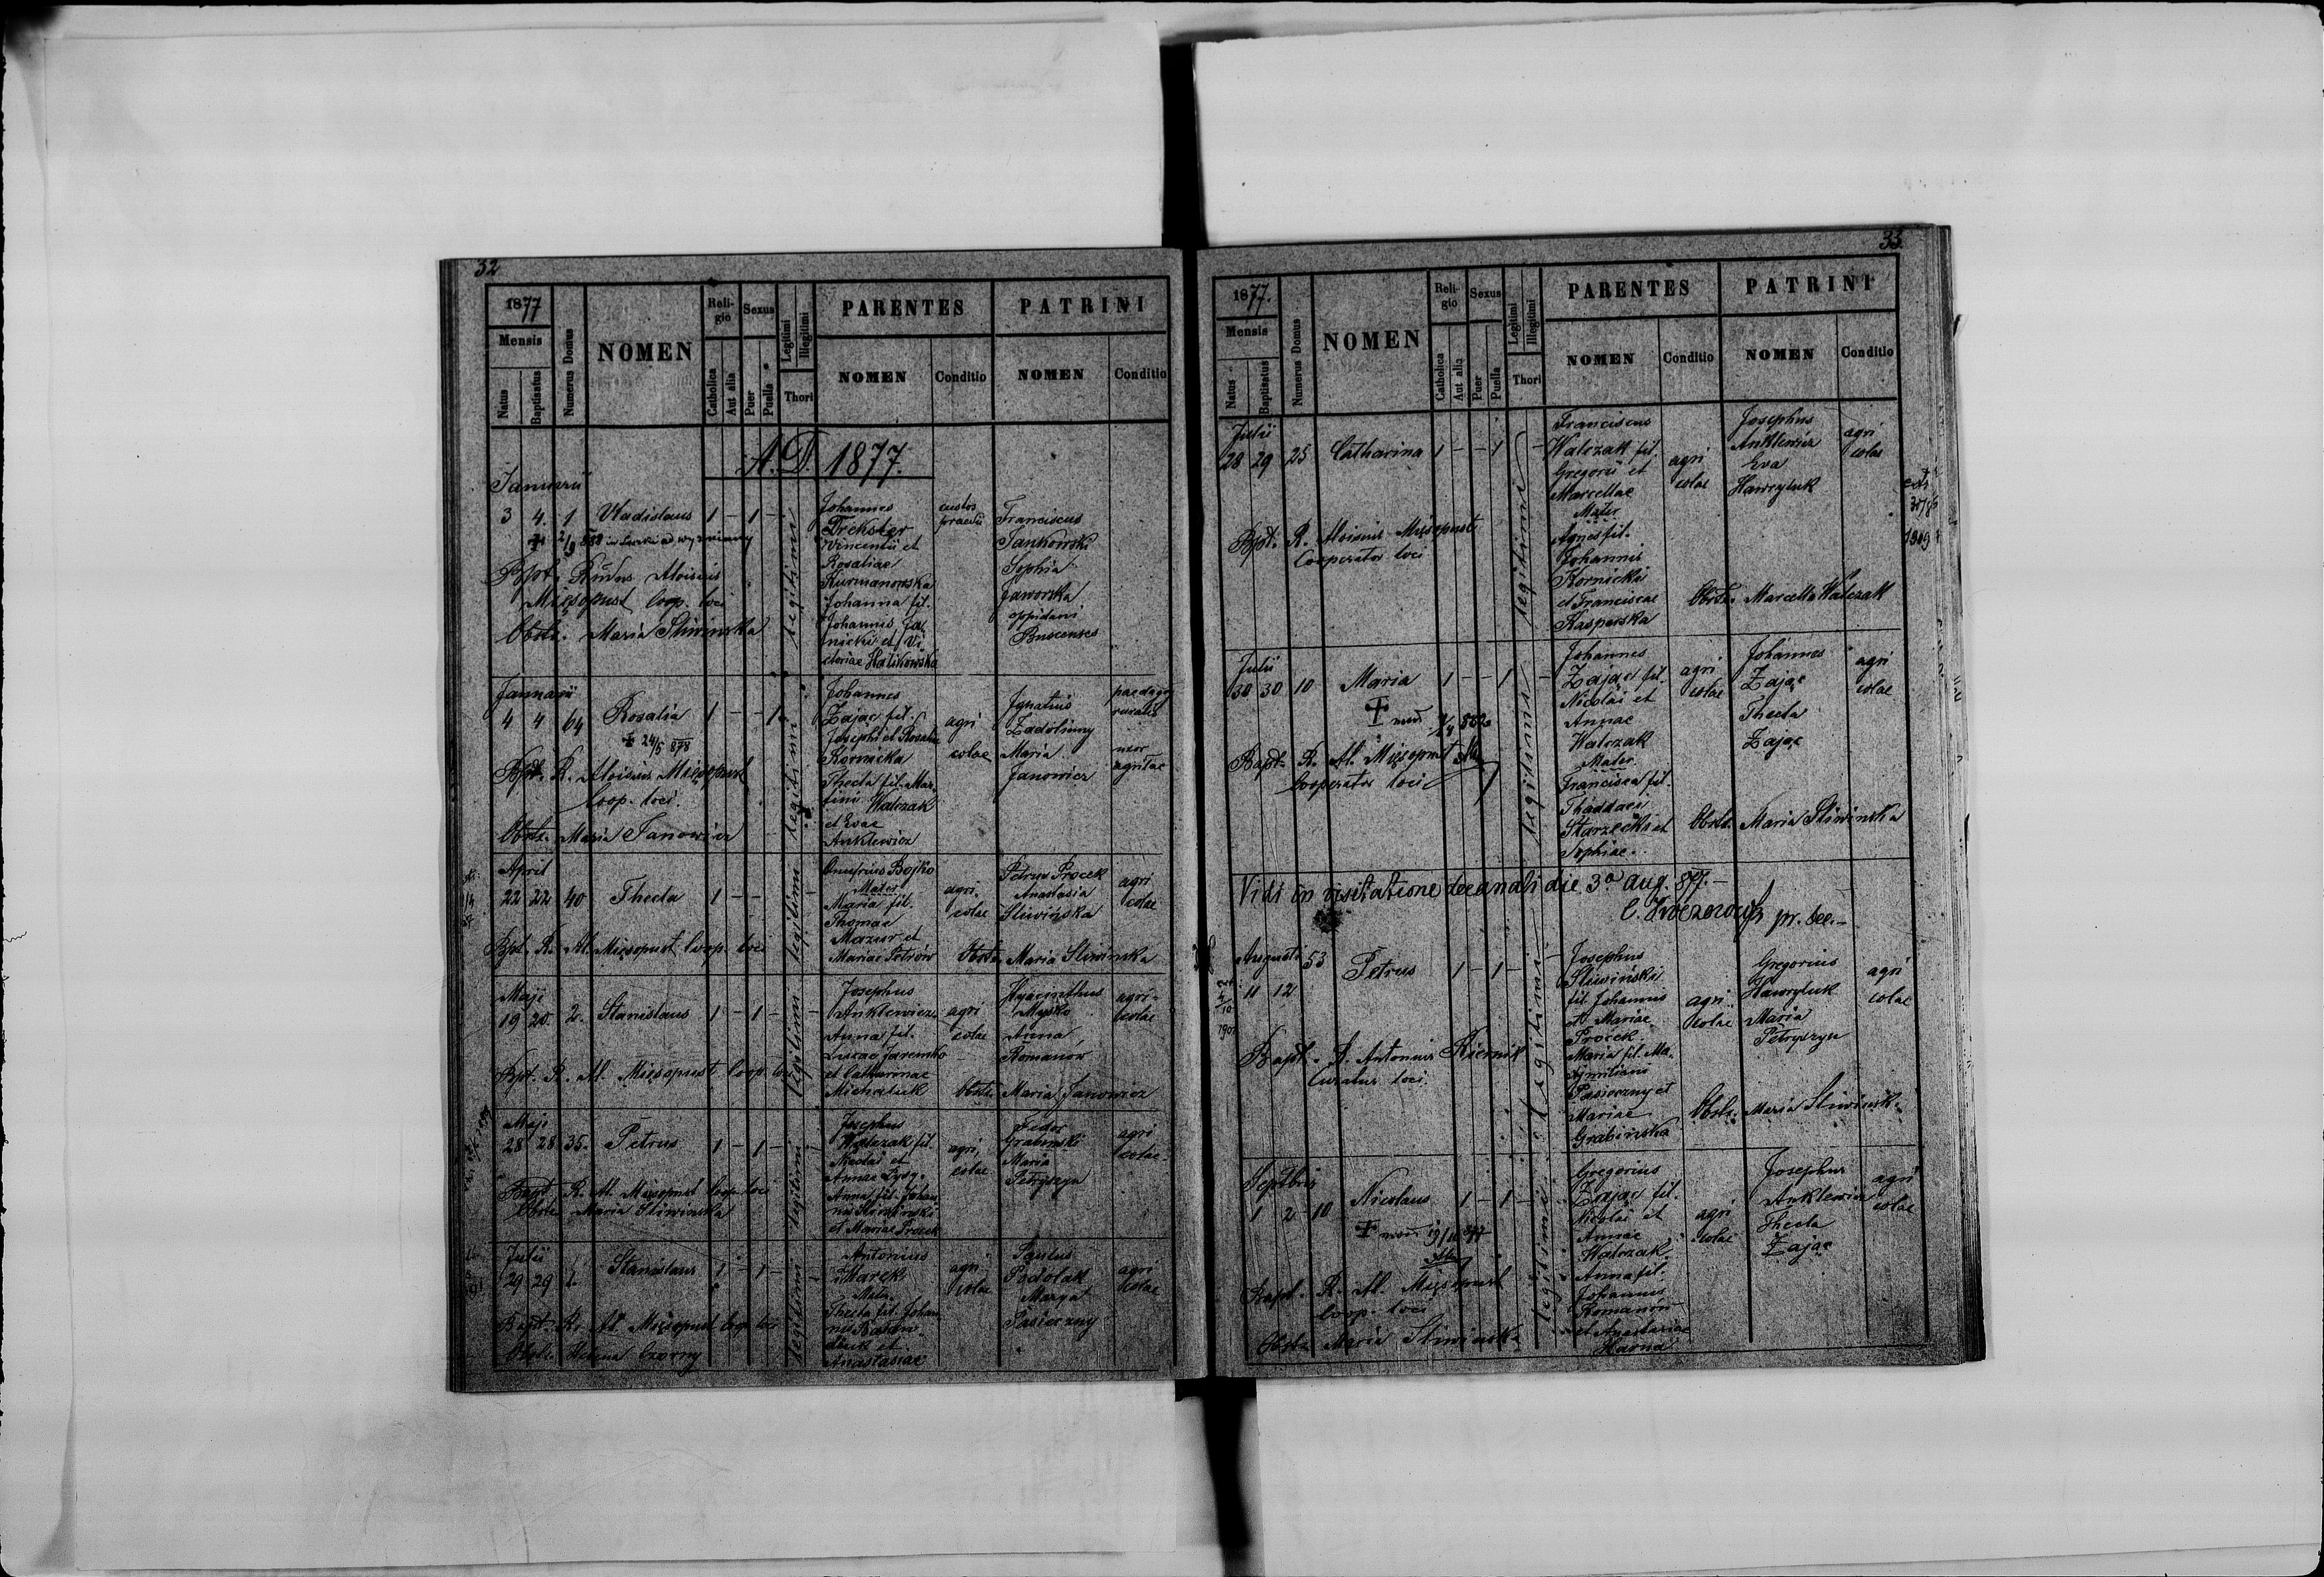 32
1877
Mensis
Natus
Baptisatus
Numerus Domus
NOMEN
Reli-
gio
Catholica
Aut alia
Sexus
Puer
Puella
Legitimi
Illegitimi
Thori
PARENTES
NOMEN
Conditio
PATRINI
NOMEN
Conditio
A. D. 1877.
Januarii
3 4. 1 Vladislaus 1 - 1 -
legitimi
Bpt. Rndus Aloisius
Mięsopust Coop. loci
Obstr. Maria Sliwinska
Johannes
Drekster
Vincentii et
Rosaliae
Kurmanowska
Johanna fil.
Johannis Ja
nicki et Vi
ctoriae Halikowska
custos
praedii
Franciscus
Jankowski
Sophia
Jaworska
oppidani
Buscenses
Januarii
4 4 64 Rosalia 1 - - 1
24/5 878
legitimi
Bpt. R. Aloisius Mięsopust
Coop. loci.
Obstr. Maria Janowicz
Johannes
Zając fil.
Josephi et Rosaliae
Kornicka
Thecla fil. Mar
tini Walczak
et Evae
Anklewicz
agri
colae
Ignatius
Zadolinny
Maria
Janowicz
paedagog
ruralis
uxor
agricolae
April
22 22 40 Thecla 1 - -
legitimi
Bpt. R. Al. Mięsopust Coop. loci
Onufrius Bojko
Mater
Maria fil.
Thomae
Mazur et
Mariae Petrów
agri
colae
Petrus Procek
Anastasia
Sliwińska
agri
colae
Obstr. Maria Sliwinska
Maji
19 20. 2. Stanislaus 1 - 1 -
legitimi
Bpt. R. Al. Mięsopust Coop. loci
Josephus
Anklewicz
Anna fil.
Lucae Jaremko
et Catharinae
Michaluk
agri
colae
Hyacinthus
Mysko
Anna
Romanow
agri-
colae
Obstr. Maria Janowicz
Maji
28 28 35. Petrus 1 - 1 -
legitimi
Bapt. R. Al. Mięsopust Coop. loci
Obstr. Maria Sliwinska
Josephus
Walczak fil.
Nicolai et
Annae
Anna fil. Johan
nis Sliwinski
et Mariae Procek
agri
colae
Fedor
Grabinski
Maria
Petryszyn
agri
colae
Julii
29 29 1. Stanislaus 1 - 1 -
legitimi
Bapt. R. Al. Mięsopust Coop. loci
Obstr. Helena Czorny
Antonius
Marek
Mater
Thecla fil. Johan
nis
et
Anastasiae
agri
colae
Paulus
Podolak
Marya
Pasieczny
agri
colae
33.
1877.
Mensis
Natus
Baptisatus
Numerus Domus
NOMEN
Reli-
gio
Catholica
Aut alia
Sexus
Puer
Puella
Legitimi
Illegitimi
Thori
PARENTES
NOMEN
Conditio
PATRINI
NOMEN
Conditio
Julii
28 29 25 Catharina 1 - - 1
legitimi
Bpt. R. Aloisius Mięsopust
Cooperator loci
Franciscus
Walczak fil.
Gregorii et
Marcellae
Mater
Agnes fil.
Johannis
Kornicki
et Franciscae
Kasperska
agri
colae
Josephus
Anklewicz
Eva
Hawryluk
agri
colae
Obstr. Marcella Walczak
Julii
30 30 10 Maria 1 - - 1
legitimi
Bapt. R. Al. Mięsopust
Cooperator loci
Johannes
Zając fil.
Nicolai et
Annae
Walczak
Mater
Francisca fil.
Thaddaei
Starzecki et
Sophiae.
agri
colae
Johannes
Zając
Thecla
Zając
agri
colae
Obstr. Maria Sliwinska
Vidi in visitatione decanali die 3a aug. 877.-
Augusti
11 12 53 Petrus 1 - 1 -
legitimi
Bapt. Antonius Biernik
Curatus loci.
Josephus
Sliwiński
fil. Johannis
et Mariae
Procek
Maria fil. Ma-
ximiliani
Pasieczny et
Mariae
Grabińska
agri
colae
Gregorius
Hawryluk
Maria
Petryszyn
agri
colae
Obstr. Maria Sliwinska
Septbris
1 2 10 Nicolaus 1 - 1 -
legitimi
Bapt. R. Al. Mięsopust
Coop. loci
Obstr. Maria Sliwinska
Gregorius
Zając fil.
Nicolai et
Annae
Walczak
Anna fil.
Johannis
Romanów
et Anastasiae
Harna
agri
colae
Josephus
Anklewicz
Thecla
Zając
agri
colae